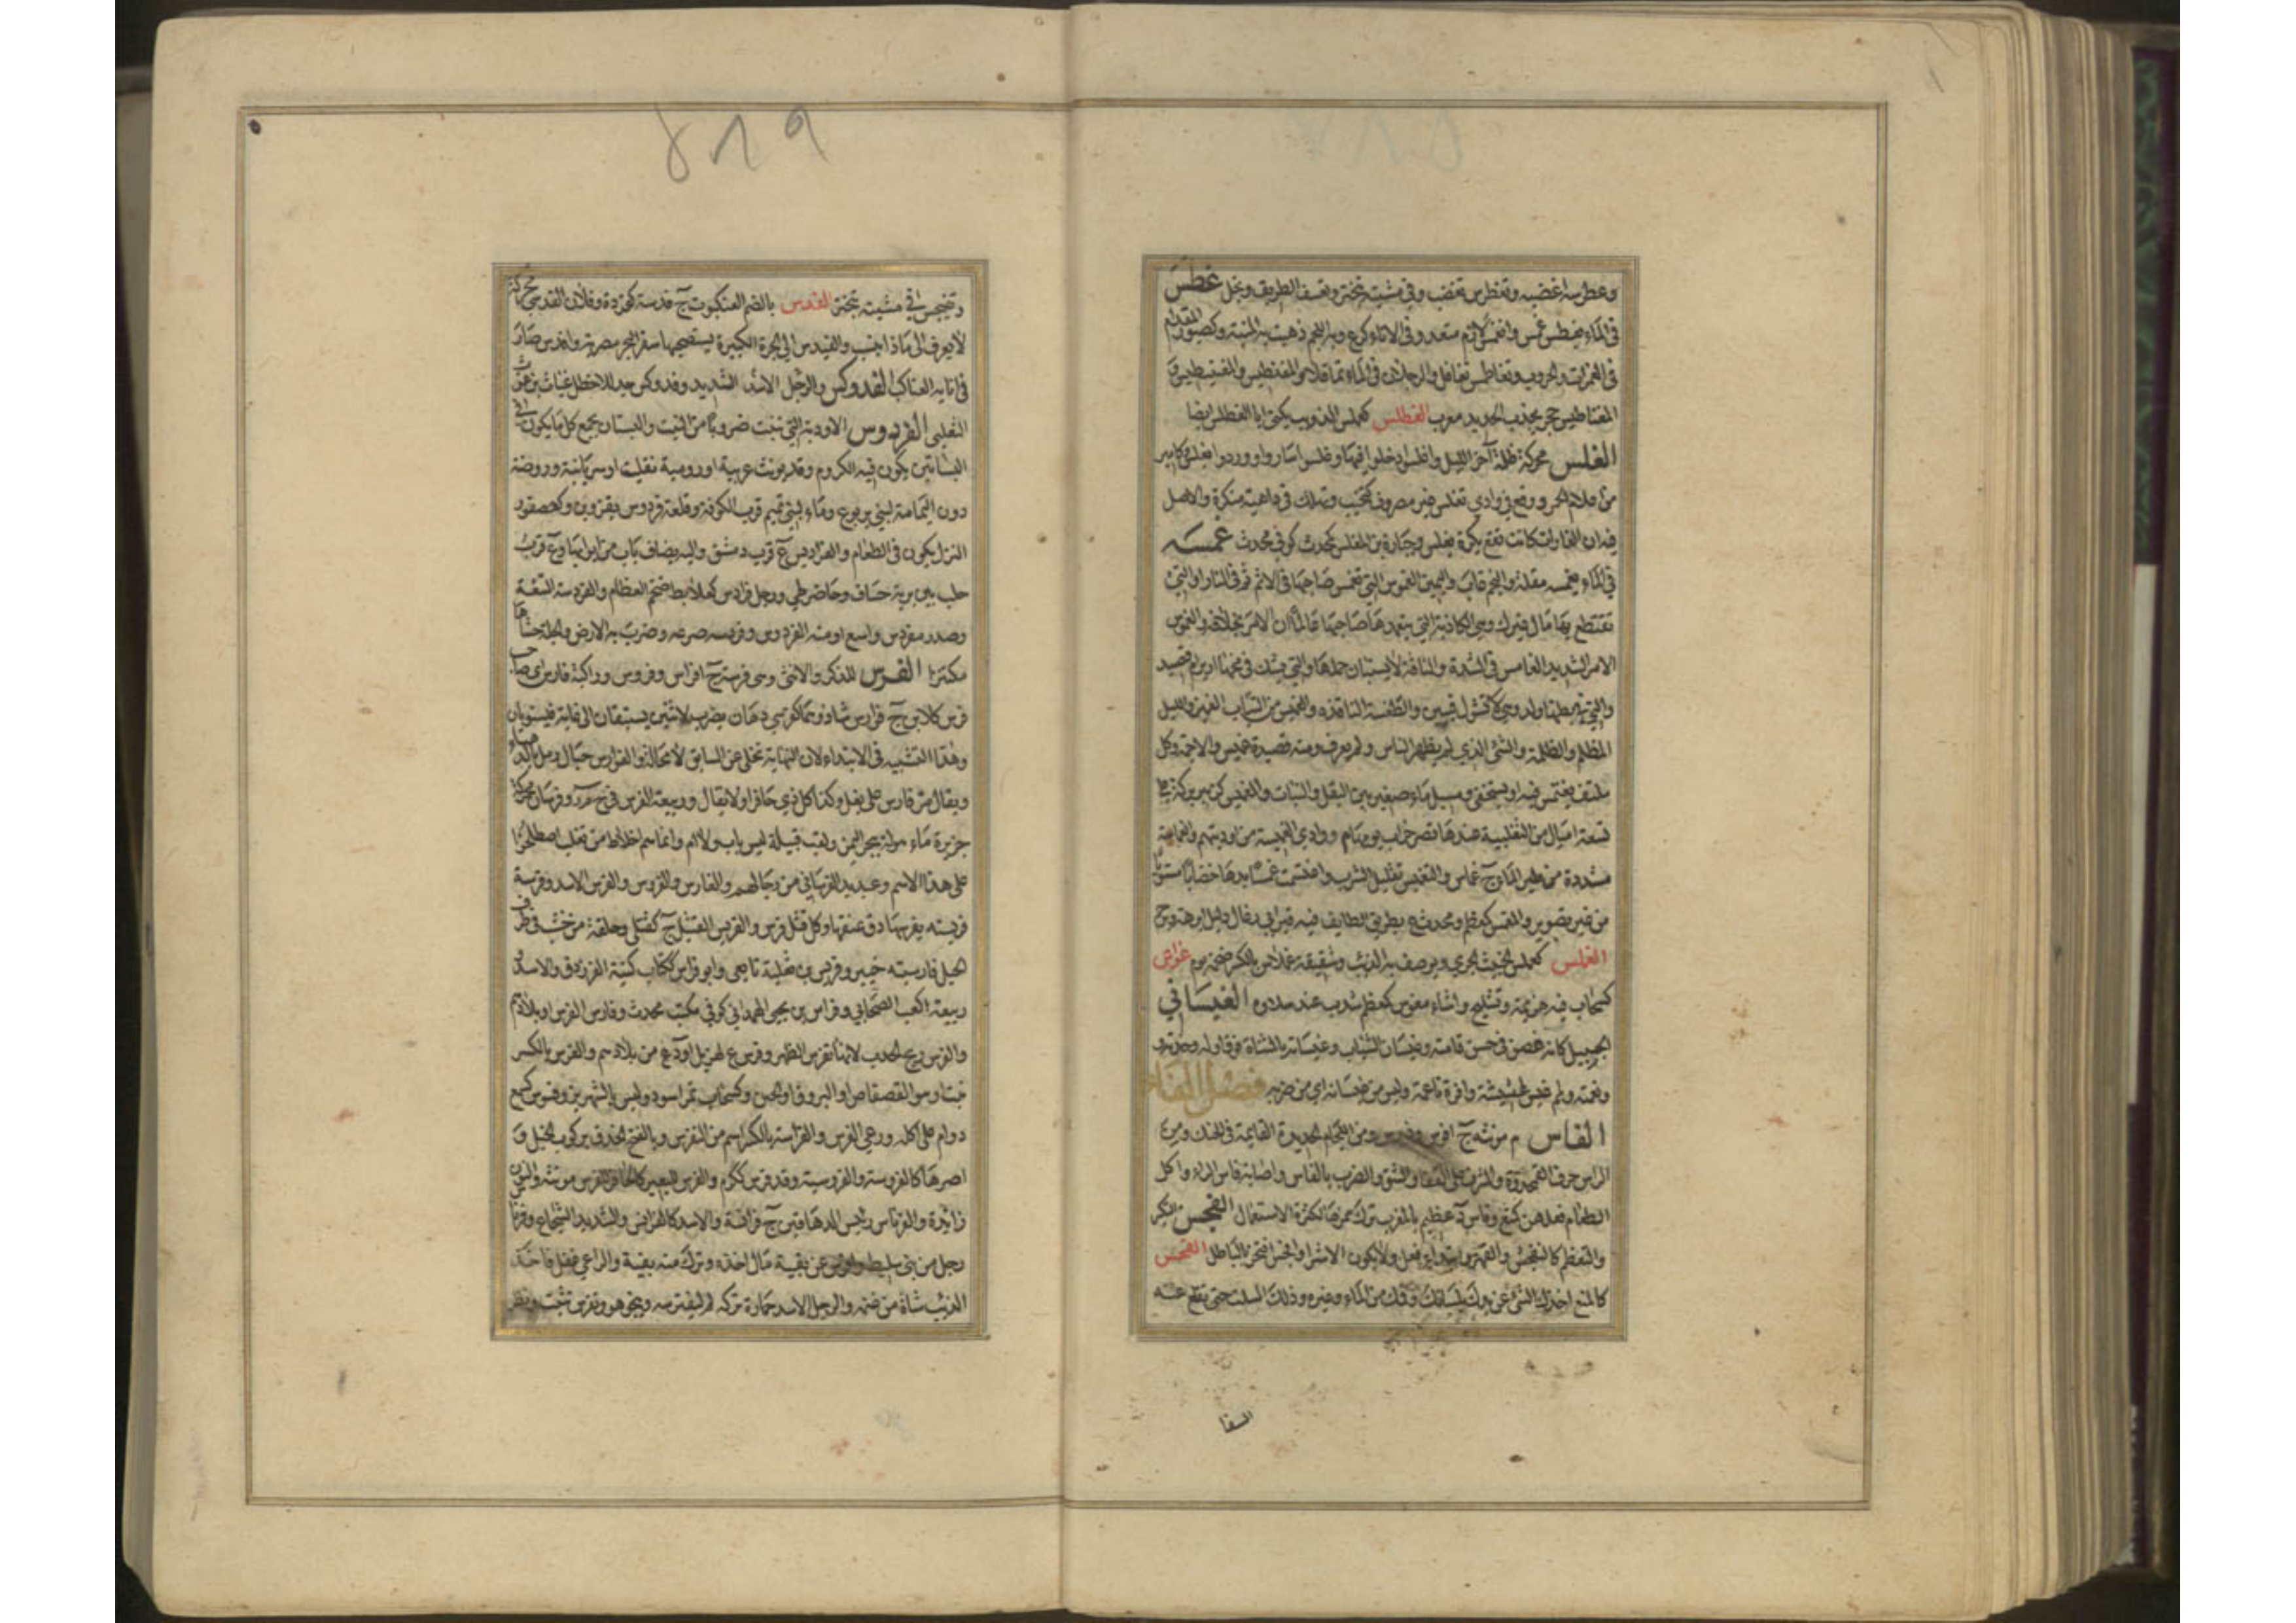 وغطرسه اغضبه وتغطرس تغضب وفي مشيته تبختر وتعسف الطريق وبخل غطس
في الماء يغطس غمس وانغمس لازم متعد وفي الاناء كرع وبه اللجم ذهبت به المنية وكصبور المقدام
في الغمرات والحروب وتغاطس تغافل والرجلان في الماء تماقلا والمغنطيس والمغنيطيس و
المغناطيس حجر يجذب الحديد معرب الغطلس كعملس الذئب يكنى ابا الغطلس ايضا
الغلس محركة ظلمة آخر الليل واغلسوا دخلوا فيها وغلسوا ساروا ووردوا بغلس وكامير
من علام الحمر ووقع في وادي تغلس غير مصروف كتخيب وتهلك في داهية منكرة والاصل
فيه ان الغارات كانت تقع بكرة بغلس وجبارة بن المغلس كمحدث كوفي محدث غمسه
في الماء يغمسه مقله والنجم غاب واليمين الغموس التي تغمس صاحبها في الاثم ثم في النار او التي
تقتطع بها مال غيرك وهي الكاذبة التي يتعمدها صاحبها عالما ان الامر بخلافه والغموس
الامر الشديد الغامس في الشدة والناقة لا يستبان حملها والتي يشك في مخها ارير ام قصيد
والتي في بطنها ولد وهي لا تشول فيبين والطعنة النافذة والغميس من النبات الغمير والليل
المظلم والظلمة والشئ الذي لم يظهر للناس ولم يعرف ومنه قصيدة غميس والاجمة وكل
ملتف يغتمس فيه او يستخفى ومسيل ماء صغير بين البقل والنبات والغميس كزبير بركة على
تسعة اميال من الثعلبية عندها قصر خراب ويوم م ووادي الغميسة من اوديتهم والغماسة
مشددة من طير الماء ج غماس والتغميس تقليل الشرب واغتمست غمست يدها خضابا مستويا
من غير تصوير والمغمس كمعظم ومحدث ع بطريق الطايف فيه قبر ابي رغال دليل ابرهة ويرجم
الغملس كعملس الخبيث الجري ويوصف به الذئب وشقيقة غملاس بالكسر ضخمة يوم غواس
كسحاب فيه هزيمة وتشليح واشاء مغوس كمعظم شذب عنه سلاؤه الغيساني
الجميل كانه غصن في حسن قامته وغيسان الشباب وغيساته بالمثناة فوق اوله وحدته و
ونعمته ولمم غيس اثيثة وافرة ناعمة وليس من غيسانه اي من ضربه فصل الفاء
الفاس م مونثة ج افوس وفووس ومن اللجام الحديدة القايمة في الحنك ومن
الراس حرف القمحدوة المشرف على القفا والشق والضرب بالفاس واصابة فاس الراس واكل
الطعام فعلهن كمنع وفاس د عظيم بالمغرب ترك همزها لكثرة الاستعمال الفجس التكبر
والتعظم كالتفجس والقهر وابتداع فعل ولا يكون الا شرا وافجس افتخر بالباطل الفحس
كالمنع اخذك الشئ عن يدك بلسانك وفمك من الماء وغيره ودلك السلت حتى تقلع عنه
السفا
وتفيجس في مشيته تبختر الفدس بالضم العنكبوت ج فدسة كقردة وفلان الفدسي محركة
لا يعرف الى ماذا نسب والفيدس الى الجرة الكبيرة يستصحبها سفر البحر مصرية وافدس صار
في انايه العناكب الفدوكس والرجل الاسد الشديد وفدوكس جد للاخطل غياث بن غوث
التغلبي الفردوس الاودية التي تنبت ضروبا من النبت والبستان يجمع كل ما يكون في
البساتين يكون فيه الكروم وقد يونث عربية او رومية نقلت او سريانية وروضة
دون اليمامة لبني يربوع وماء لبني تميم قرب الكوفة وقلعة فردوس بقزوين وكعصفور
النزل يكون في الطعام والفراديس ع قرب دمشق واليه يضاف باب من ابوابها وع قرب
حلب بين برية خساف وحاضر طي ورجل فرادس كعلابط ضخم العظام والفردسة السعة
وصدر مفردس واسع او منه الفردوس وفردسه صرعه وضرب به الارض والجلة حشاها
مكتنزا الفرس للذكر والانثى وهي فرسة ج افراس وفروس وراكبه فارس اي صاحب
فرس كلابن ج فوارس شاذ وهما كفرسي رهان يضرب لاثنين يستبقان الى غاية فيستويان
وهذا التشبيه في الابتداء لان النهاية تجلى عن السابق لا محالة والفوارس حبال رمل بالدهناء
ويقال مر فارس على بغل وكذا كل ذي حافر او لا يقال وربيعة الفرس في ح م ر وفرسان محركة
جزيرة ماهولة ببحر اليمن ولقب قبيلة ليس باب ولا ام وانما هم اخلاط من تغلب اصطلحوا
على هذا الاسم وعبديد الفرساني من رجالهم والفارس والفروس والفرس الاسد وفرسة
فريسته يفرسها دق عنقها وكل قتل فرس والفريس القتيل ج كقتلى وحلقة من خشب في طرف
الحبل فارسيته خنبر وفريس بن ثعلبة تابعي وابو فراس ككتاب كنية الفرزدق والاسد و
ربيعة بن كعب الصحابي وفراس بن يحيى الهمداني كوفي مكتب محدث وفارس الفرس او بلادهم
والفرسة ريح الحدب لانها تفرس الظهر وفرس ع لهذيل او د من بلادهم والفرس بالكسر
نبت او هو القصقاص او البروق او الحبن وكسحاب تمر اسود وليس بالشهريز وفرس كسمع
دوام على اكله ورعي الفرس والفراسة بالكسر اسم من التفرس وبالفتح الحذق بركوب الخيل و
امرها كالفروسة والفروسية وقد فرس ككرم والفرس للبعير كالحافر للفرس مونثة والنون
زائدة والفرناس رئيس الدهاقين ج فرانسة والاسد كالفرانس والشديد الشجاع وفرناس
رجل من بني سليط وافرس عن بقية مال اخذه وترك منه بقية والراعي غفل فاخذ
الذئب شاة من غنمه والرجل الاسد حماره تركه له ليفترسه وينجو هو وتفرس تثبت ونظر